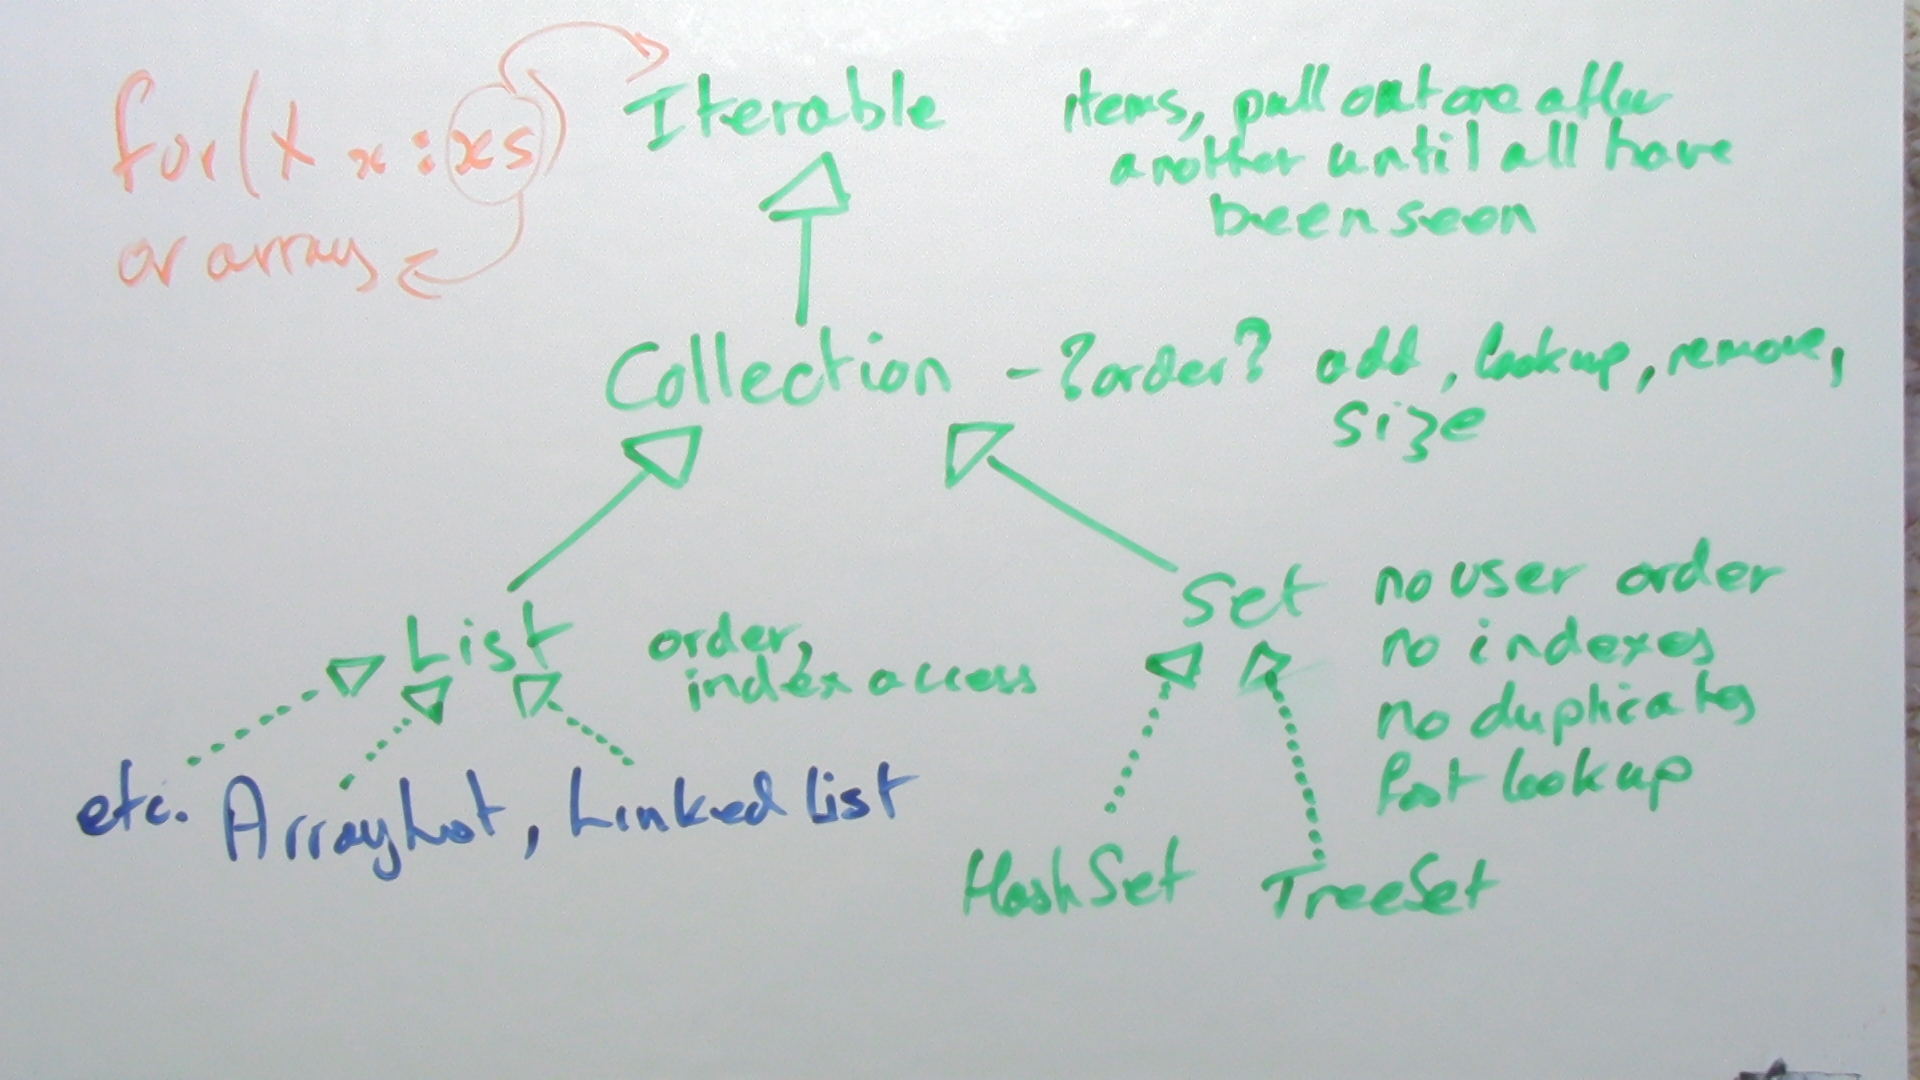 for(X x : xs)
or array
Iterable
items, pull out one after
another until all have
been seen
Collection - ?order? add, lookup, remove,
size
List
order,
index access
Set
no user order
no indexes
no duplicates
fast lookup
etc. ArrayList, LinkedList
HashSet TreeSet